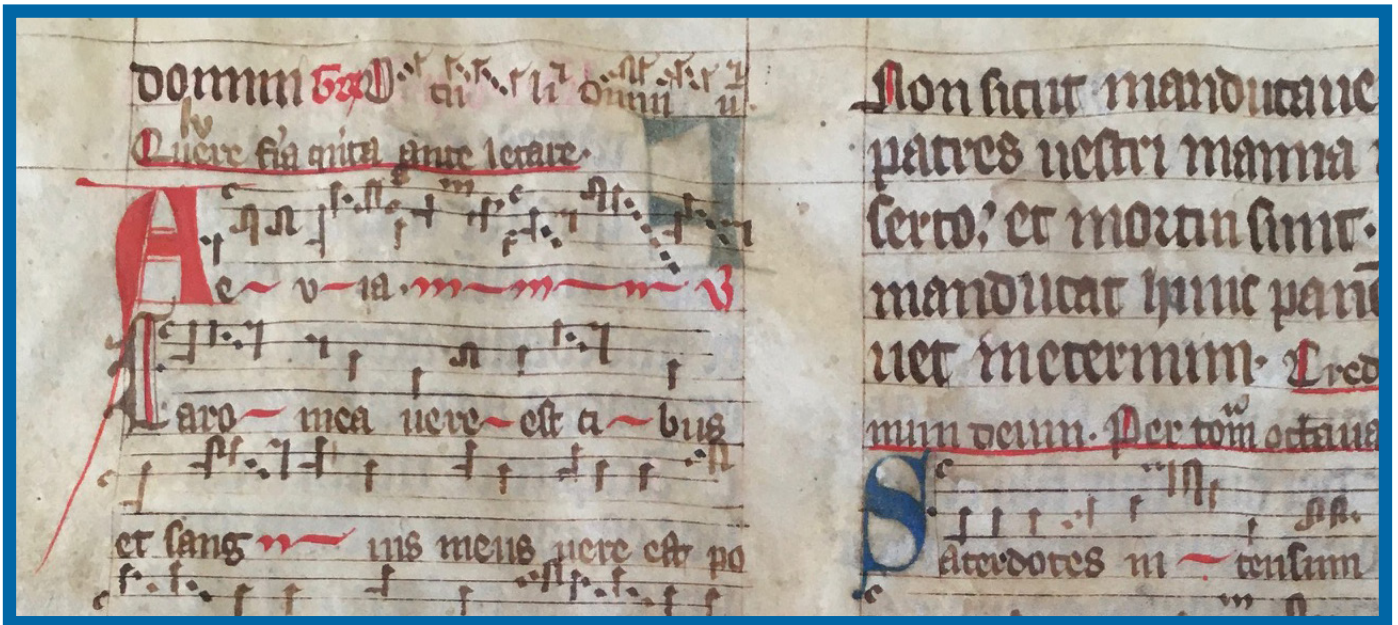 domini Gr̄ O cu li domi ni
Quere fīa quīta ante letare
Ae v ia ℣
Caro mea uere est ci bus
et sang uis meus uere est po
Non sicut manducaue
patres uestri manna
serto; et mortui sunt.
manducat hunc panē
uet ineternum. Cred
num deum. Per
Sacerdotes in censum